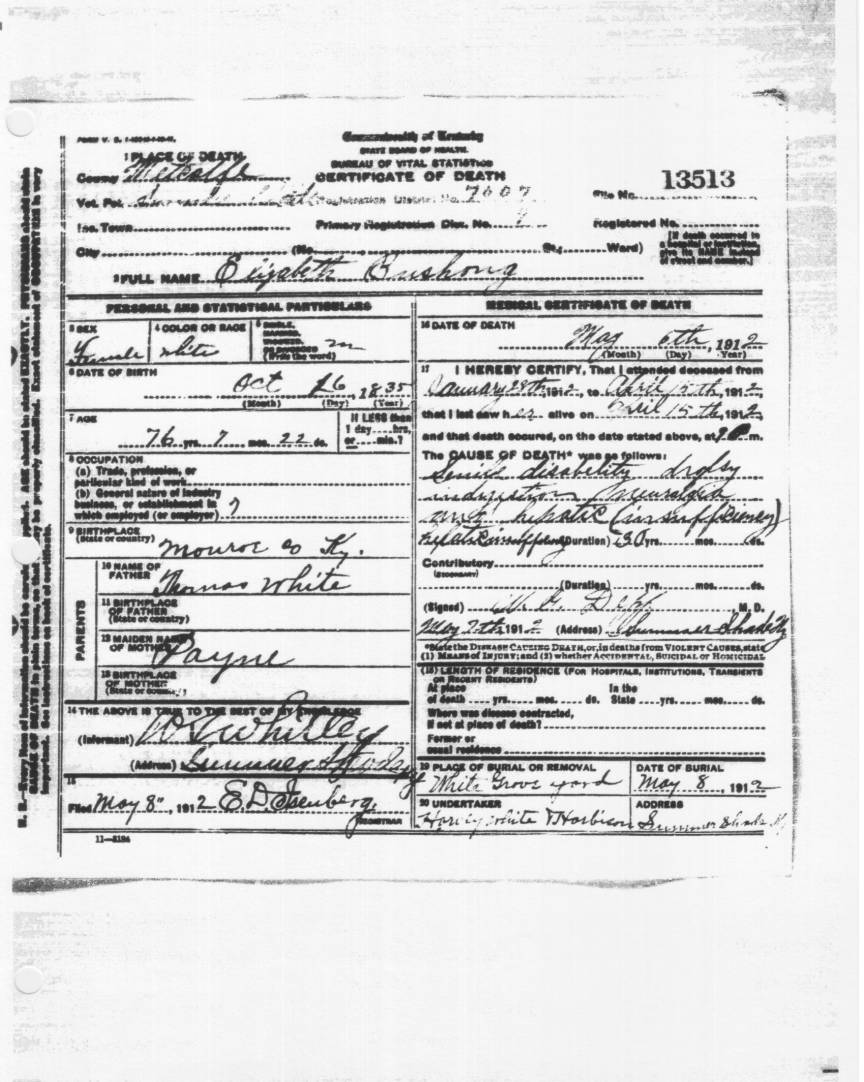 Commonwealth of Kentucky
STATE BOARD OF HEALTH.
BUREAU OF VITAL STATISTICS
CERTIFICATE OF DEATH
1 PLACE OF DEATH
County Metcalfe
Vot. Pct. Registration District No. 7607
File No. 13513
Inc. Town Primary Registration Dist. No. Registered No.
City (No. St.; Ward)
[If death occurred in a hospital or institution, give its NAME instead of street and number.]
2 FULL NAME Elizabeth Bushong
PERSONAL AND STATISTICAL PARTICULARS
3 SEX Female
4 COLOR OR RACE White
5 SINGLE, MARRIED, WIDOWED, OR DIVORCED (Write the word) m
6 DATE OF BIRTH
Oct 16, 1835
(Month) (Day) (Year)
7 AGE
76 yrs. 7 mos. 22 ds.
If LESS than 1 day....hrs, or....min.?
8 OCCUPATION
(a) Trade, profession, or
particular kind of work
(b) General nature of industry
business, or establishment in
which employed (or employer)
9 BIRTHPLACE
(State or country) Monroe co Ky.
PARENTS
10 NAME OF FATHER Thomas White
11 BIRTHPLACE OF FATHER (State or country)
12 MAIDEN NAME OF MOTHER Payne
13 BIRTHPLACE OF MOTHER (State or country)
14 THE ABOVE IS TRUE TO THE BEST OF MY KNOWLEDGE
(Informant) Whitley
(Address) Summer Shade Ky
15
Filed May 8", 1912 E.D. Isenberg,
REGISTRAR
11—3184
MEDICAL CERTIFICATE OF DEATH
16 DATE OF DEATH
May 6th, 1912
(Month) (Day) (Year)
17 I HEREBY CERTIFY, That I attended deceased from
January 28th 1912, to April 15th, 1912,
that I last saw her alive on April 15th, 1912,
and that death occured, on the date stated above, at m.
The CAUSE OF DEATH* was as follows:
Senile disability dropsy
indigestion neuralgia
and hepatic (insufficiency)
(Duration) yrs. mos. ds.
Contributory
(SECONDARY)
(Duration) yrs. mos. ds.
(Signed) M. D.
May 7th 1912 (Address) Summer Shade Ky
*State the DISEASE CAUSING DEATH, or, in deaths from VIOLENT CAUSES, state
(1) MEANS OF INJURY; and (2) whether ACCIDENTAL, SUICIDAL OR HOMICIDAL
(18) LENGTH OF RESIDENCE (FOR HOSPITALS, INSTITUTIONS, TRANSIENTS
OR RECENT RESIDENTS)
At place In the
of death yrs. mos. ds. State yrs. mos. ds.
Where was disease contracted,
if not at place of death?
Former or
usual residence
19 PLACE OF BURIAL OR REMOVAL
White Grove yard
DATE OF BURIAL
May 8, 1912
20 UNDERTAKER
Harvey White & Harbison
ADDRESS
Summer Shade Ky